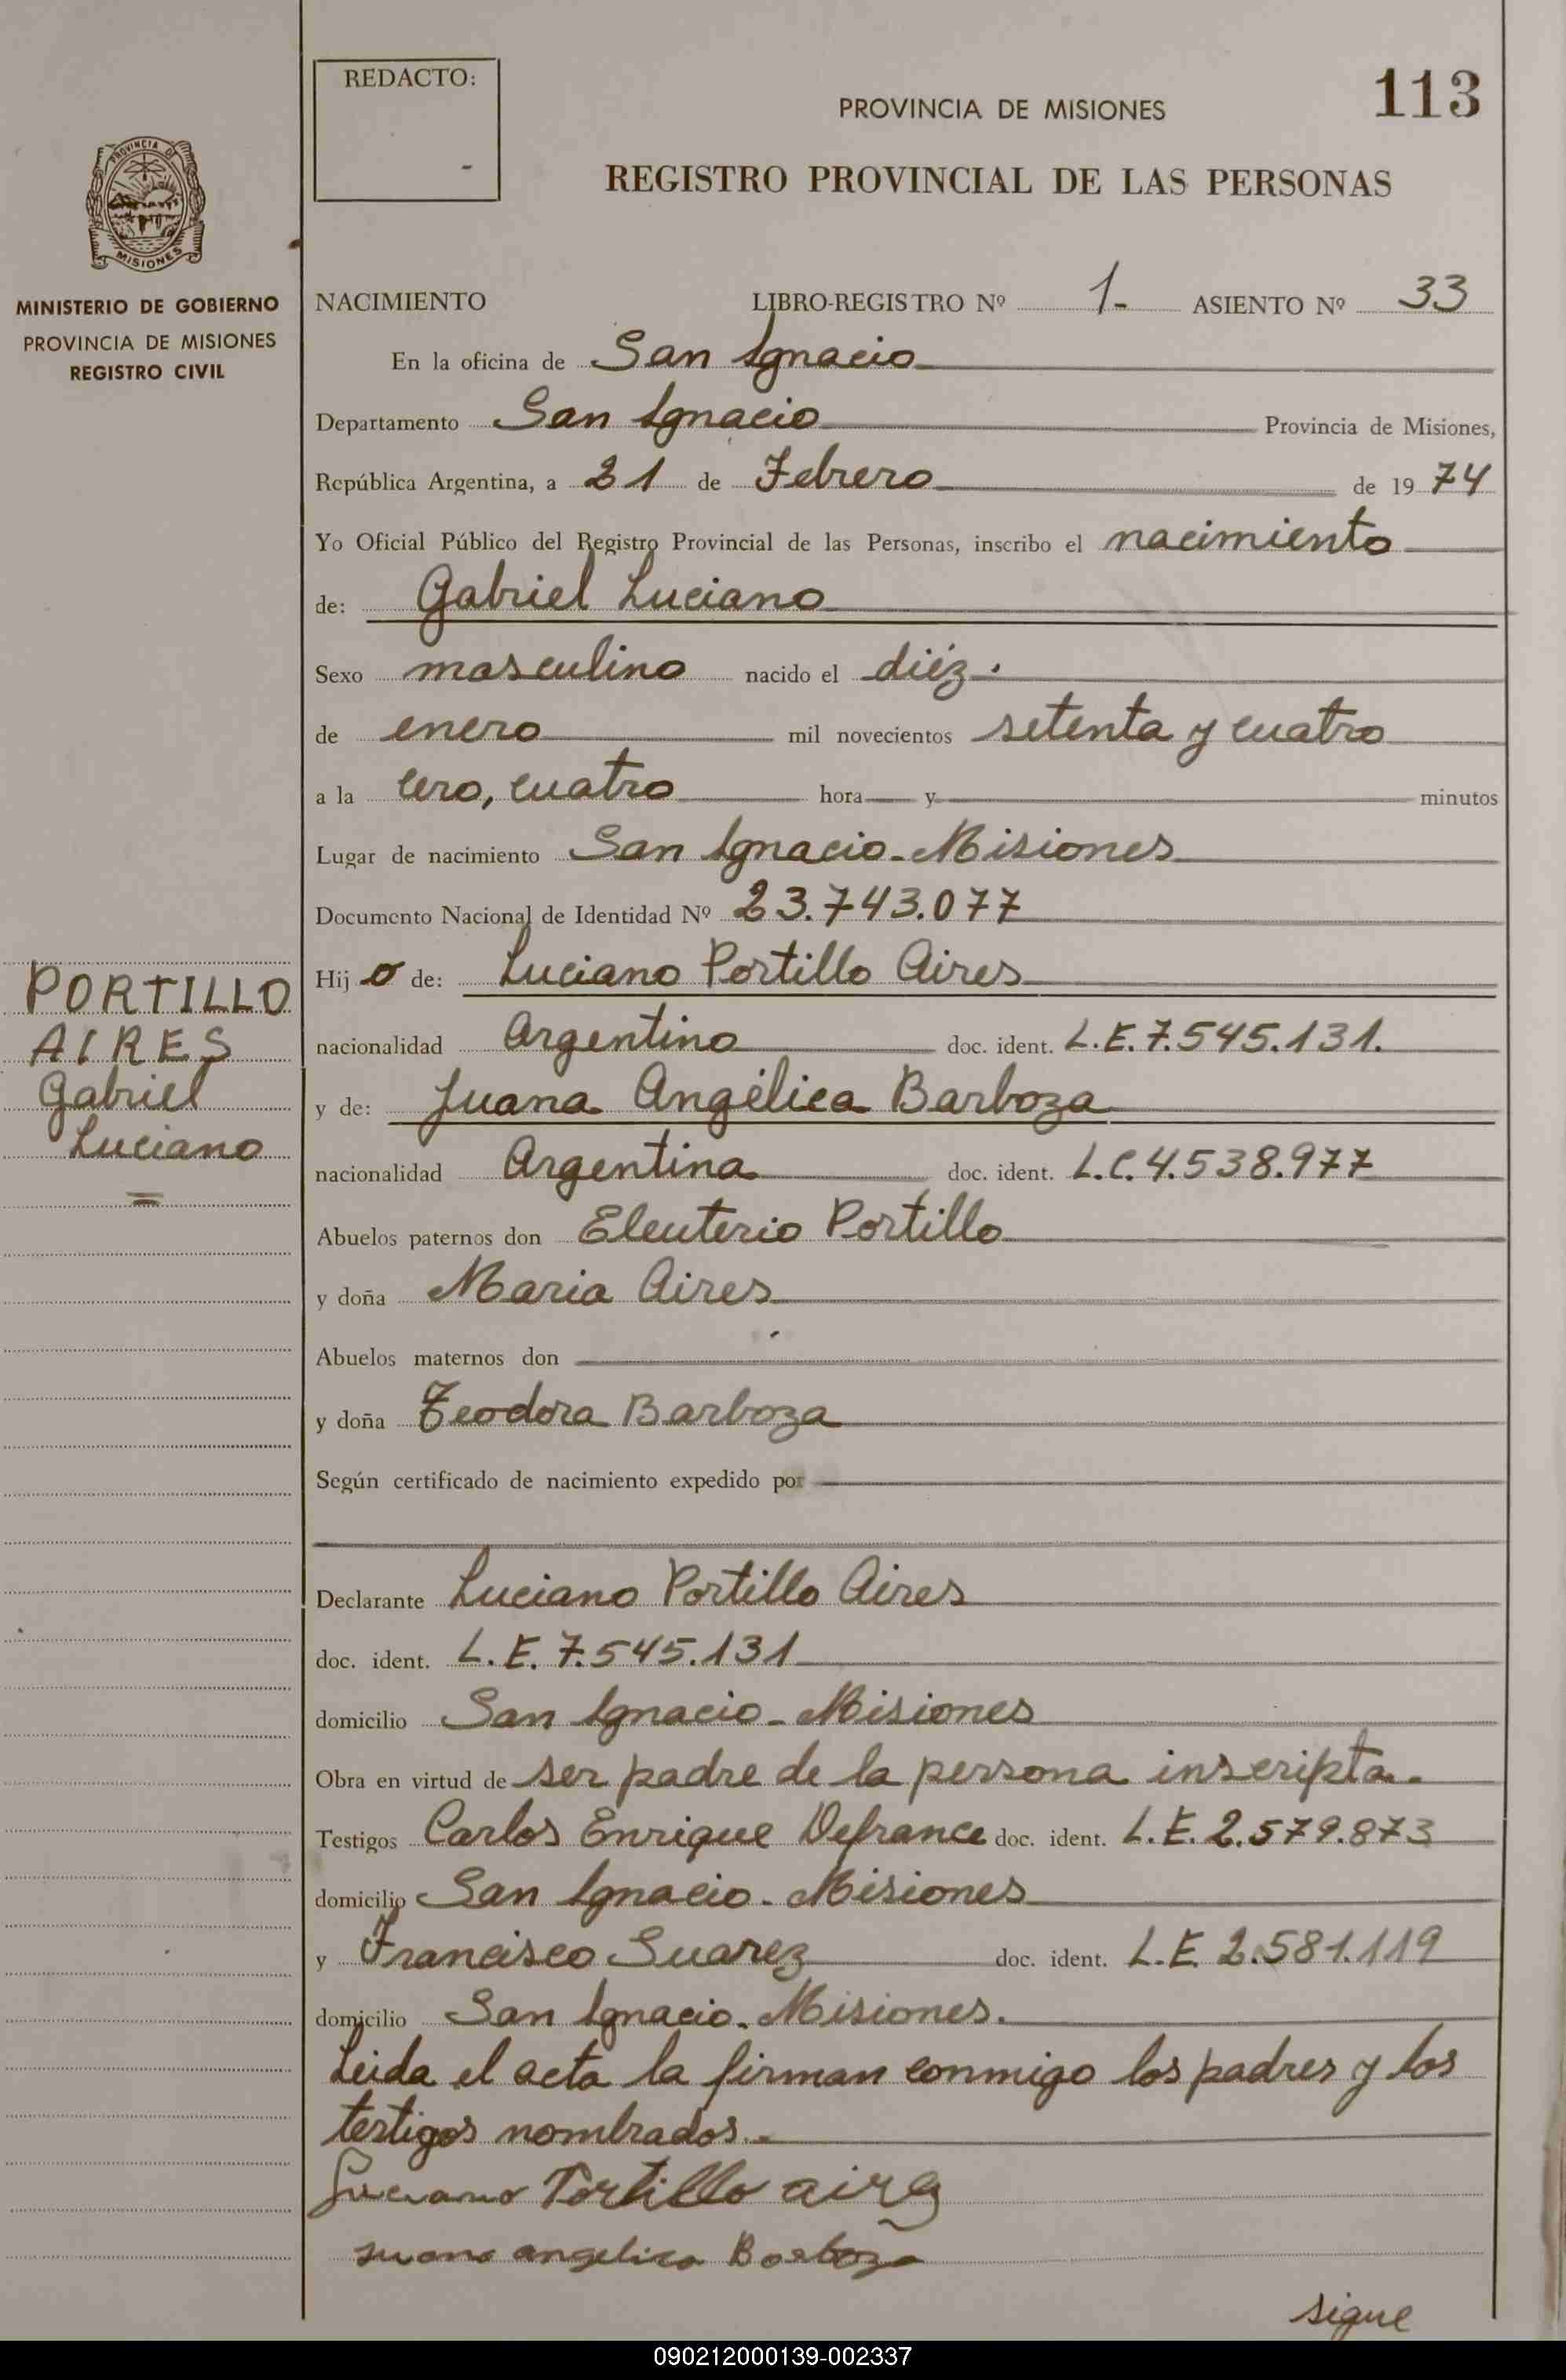 REDACTO:
PROVINCIA DE MISIONES
113
REGISTRO PROVINCIAL DE LAS PERSONAS
PROVINCIA DE
MISIONES
MINISTERIO DE GOBIERNO
PROVINCIA DE MISIONES
REGISTRO CIVIL
NACIMIENTO LIBRO-REGISTRO Nº 1- ASIENTO Nº 33
En la oficina de San Ignacio
Departamento San Ignacio Provincia de Misiones,
República Argentina, a 21 de Febrero de 1974
Yo Oficial Público del Registro Provincial de las Personas, inscribo el nacimiento
de: Gabriel Luciano
Sexo masculino nacido el diéz.
de enero mil novecientos setenta y cuatro
a la cero, cuatro hora y minutos
Lugar de nacimiento San Ignacio-Misiones
Documento Nacional de Identidad Nº 23.743.077
Hijo de: Luciano Portillo Aires
PORTILLO
AIRES
Gabriel
Luciano
nacionalidad Argentino doc. ident. L.E. 7.545.131.
y de: Juana Angélica Barboza
nacionalidad Argentina doc. ident. L.C. 4.538.977
Abuelos paternos don Eleuterio Portillo
y doña Maria Aires
Abuelos maternos don
y doña Teodora Barboza
Según certificado de nacimiento expedido por
Declarante Luciano Portillo Aires
doc. ident. L.E. 7.545.131
domicilio San Ignacio-Misiones
Obra en virtud de ser padre de la persona inscripta.
Testigos Carlos Enrique Defrance doc. ident. L.E. 2.579.873
domicilio San Ignacio-Misiones
y Francisco Suarez doc. ident. L.E. 2.581.119
domicilio San Ignacio-Misiones.
Leida el acta la firman conmigo los padres y los
testigos nombrados.-
Luciano Portillo aires
Juana angelica Barboza
sigue
090212000139-002337